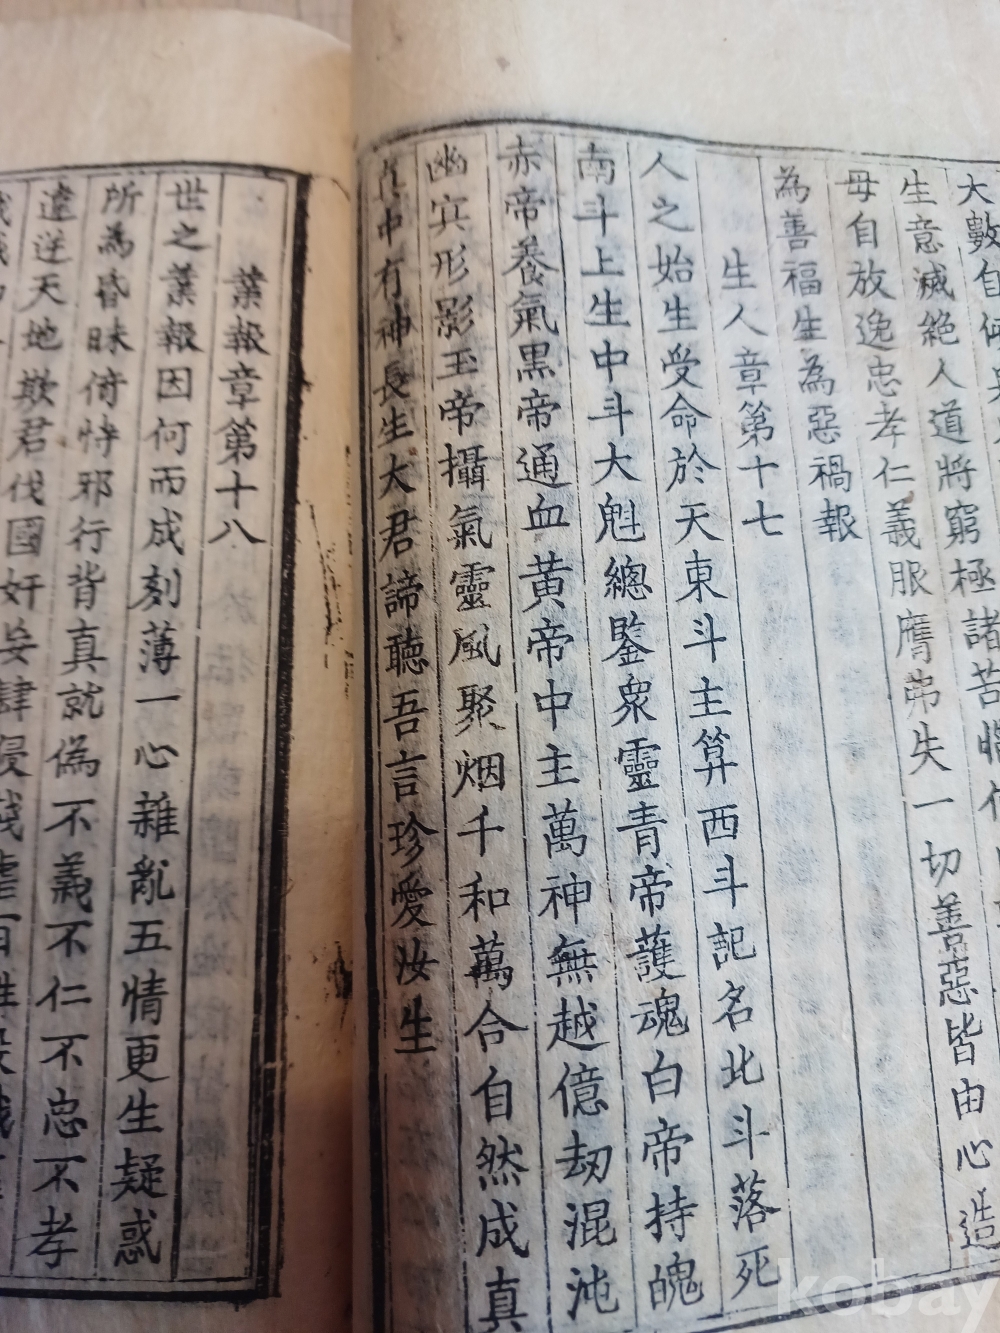 大數自
生意滅絕人道將窮極諸苦
毋自放逸忠孝仁義服膺弗失一切善惡皆由心造
為善福生為惡禍報
生人章第十七
人之始生受命於天東斗主算西斗記名北斗落死
南斗上生中斗大魁總鑒眾靈青帝護魂白帝持魄
赤帝養氣黑帝通血黃帝中主萬神無越億劫混沌
幽冥形影玉帝攝氣靈風聚烟千和萬合自然成真
真中有神長生大君諦聽吾言珍愛汝生
業報章第十八
世之業報因何而成刻薄一心雜亂五情更生疑惑
所為昏昧倚恃邪行背真就偽不義不仁不忠不孝
違逆天地欺君伐國奸妄肆侵
kobay